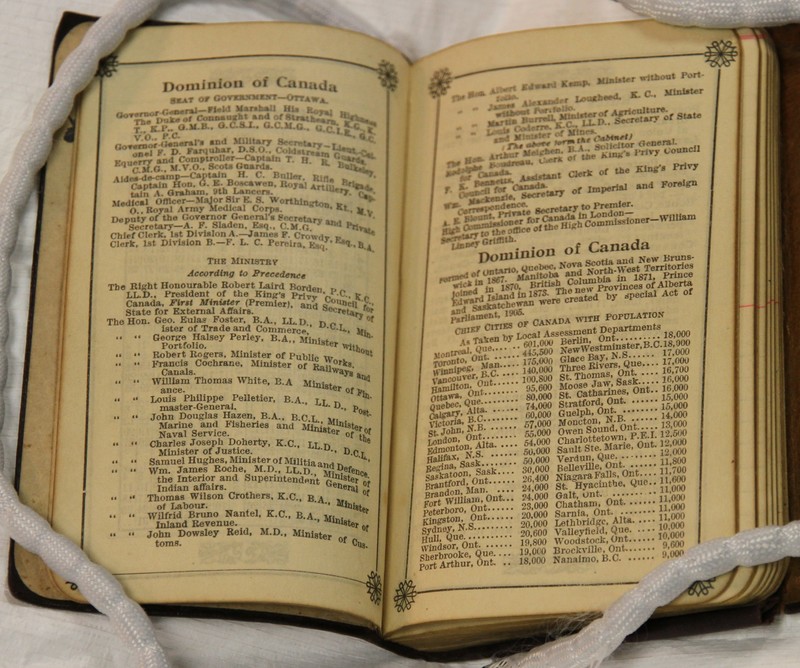 Dominion of Canada
SEAT OF GOVERNMENT—OTTAWA.
Governor-General—Field Marshall His Royal Highness
The Duke of Connaught and of Strathearn, K.G., K.
T., K.P., G.M.B., G.C.S.I., G.C.M.G., G.C.I.E., G.C.
V.O., P.C.
Governor-General's and Military Secretary—Lieut.-Col-
onel F. D. Farquhar, D.S.O., Coldstream Guards.
Equerry and Comptroller—Captain T. H. R. Bulkeley,
C.M.G., M.V.O., Scots Guards.
Aides-de-camp—Captain H. C. Buller, Rifle Brigade,
Captain Hon. G. E. Boscawen, Royal Artillery, Cap-
tain A. Graham, 9th Lancers.
Medical Officer—Major Sir E. S. Worthington, Kt., M.V.
O., Royal Army Medical Corps.
Deputy of the Governor General's Secretary and Private
Secretary—A. F. Sladen, Esq., C.M.G.
Chief Clerk, 1st Division A.—James F. Crowdy, Esq., B.A.
Clerk, 1st Division B.—F. L. C. Pereira, Esq.
THE MINISTRY
According to Precedence
The Right Honourable Robert Laird Borden, P.C., K.C.,
LL.D., President of the King's Privy Council for
Canada, First Minister (Premier), and Secretary of
State for External Affairs.
The Hon. Geo. Eulas Foster, B.A., LL.D., D.C.L., Min-
ister of Trade and Commerce.
" " George Halsey Perley, B.A., Minister without
Portfolio.
" " Robert Rogers, Minister of Public Works.
" " Francis Cochrane, Minister of Railways and
Canals.
" " William Thomas White, B.A Minister of Fin-
ance.
" " Louis Philippe Pelletier, B.A., LL. D., Post-
master-General.
" " John Douglas Hazen, B.A., B.C.L., Minister of
Marine and Fisheries and Minister of the
Naval Service.
" " Charles Joseph Doherty, K.C., LL.D., D.C.L.,
Minister of Justice.
" " Samuel Hughes, Minister of Militia and Defence.
" " Wm. James Roche, M.D., LL.D., Minister of
the Interior and Superintendent General of
Indian affairs.
" " Thomas Wilson Crothers, K.C., B.A., Minister
of Labour.
" " Wilfrid Bruno Nantel, K.C., B.A., Minister of
Inland Revenue.
" " John Dowsley Reid, M.D., Minister of Cus-
toms.
The Hon. Albert Edward Kemp, Minister without Port-
folio.
" " James Alexander Lougheed, K. C., Minister
without Portfolio.
" " Martin Burrell, Minister of Agriculture.
" " Louis Coderre, K.C., LL.D., Secretary of State
and Minister of Mines.
(The above form the Cabinet)
The Hon. Arthur Meighen, B.A., Solicitor General.
Rodolphe Boudreau, Clerk of the King's Privy Council
for Canada.
F. K. Bennetts, Assistant Clerk of the King's Privy
Council for Canada.
Wm. Mackenzie, Secretary of Imperial and Foreign
Correspondence.
A. E. Blount, Private Secretary to Premier.
High Commissioner for Canada in London—
Secretary to the office of the High Commissioner—William
Linney Griffith.
Dominion of Canada
Formed of Ontario, Quebec, Nova Scotia and New Bruns-
wick in 1867. Manitoba and North-West Territories
joined in 1870, British Columbia in 1871, Prince
Edward Island in 1873. The new Provinces of Alberta
and Saskatchewan were created by special Act of
Parliament, 1905.
CHIEF CITIES OF CANADA WITH POPULATION
As Taken by Local Assessment Departments
Montreal, Que....... 601,000 Berlin, Ont......... 18,000
Toronto, Ont ...... 445,500 New Westminster, B.C. 18,900
Winnipeg, Man..... 175,000 Glace Bay, N.S...... 17,000
Vancouver, B.C. .... 140,000 Three Rivers, Que... 17,000
Hamilton, Ont...... 100,800 St. Thomas, Ont. .... 16,700
Ottawa, Ont........ 95,600 Moose Jaw, Sask..... 16,000
Quebec, Que........ 80,000 St. Catharines, Ont.. 16,000
Calgary, Alta. ..... 74,000 Stratford, Ont. ..... 15,000
Victoria, B.C....... 60,000 Guelph, Ont. ....... 15,000
St. John, N.B. ..... 57,000 Moncton, N.B. ...... 14,000
London, Ont........ 55,000 Owen Sound, Ont.... 13,000
Edmonton, Alta. .... 54,000 Charlottetown, P.E.I. 12,500
Halifax, N.S. ...... 50,000 Sault Ste. Marie, Ont. 12,000
Regina, Sask....... 50,000 Verdun, Que. ....... 12,000
Saskatoon, Sask.... 30,000 Belleville, Ont. ..... 11,800
Brantford, Ont...... 26,400 Niagara Falls, Ont... 11,700
Brandon, Man. .... 24,000 St. Hyacinthe, Que.. 11,600
Fort William, Ont... 24,000 Galt, Ont. .......... 11,000
Peterboro, Ont...... 23,000 Chatham, Ont. ...... 11,000
Kingston, Ont...... 20,000 Sarnia, Ont. ........ 11,000
Sydney, N.S........ 20,000 Lethbridge, Alta. ... 11,000
Hull, Que. ........ 20,600 Valleyfield, Que. ... 10,000
Windsor, Ont. ..... 19,800 Woodstock, Ont...... 10,000
Sherbrooke, Que.... 19,000 Brockville, Ont...... 9,600
Port Arthur, Ont. .. 18,000 Nanaimo, B.C. ...... 9,000